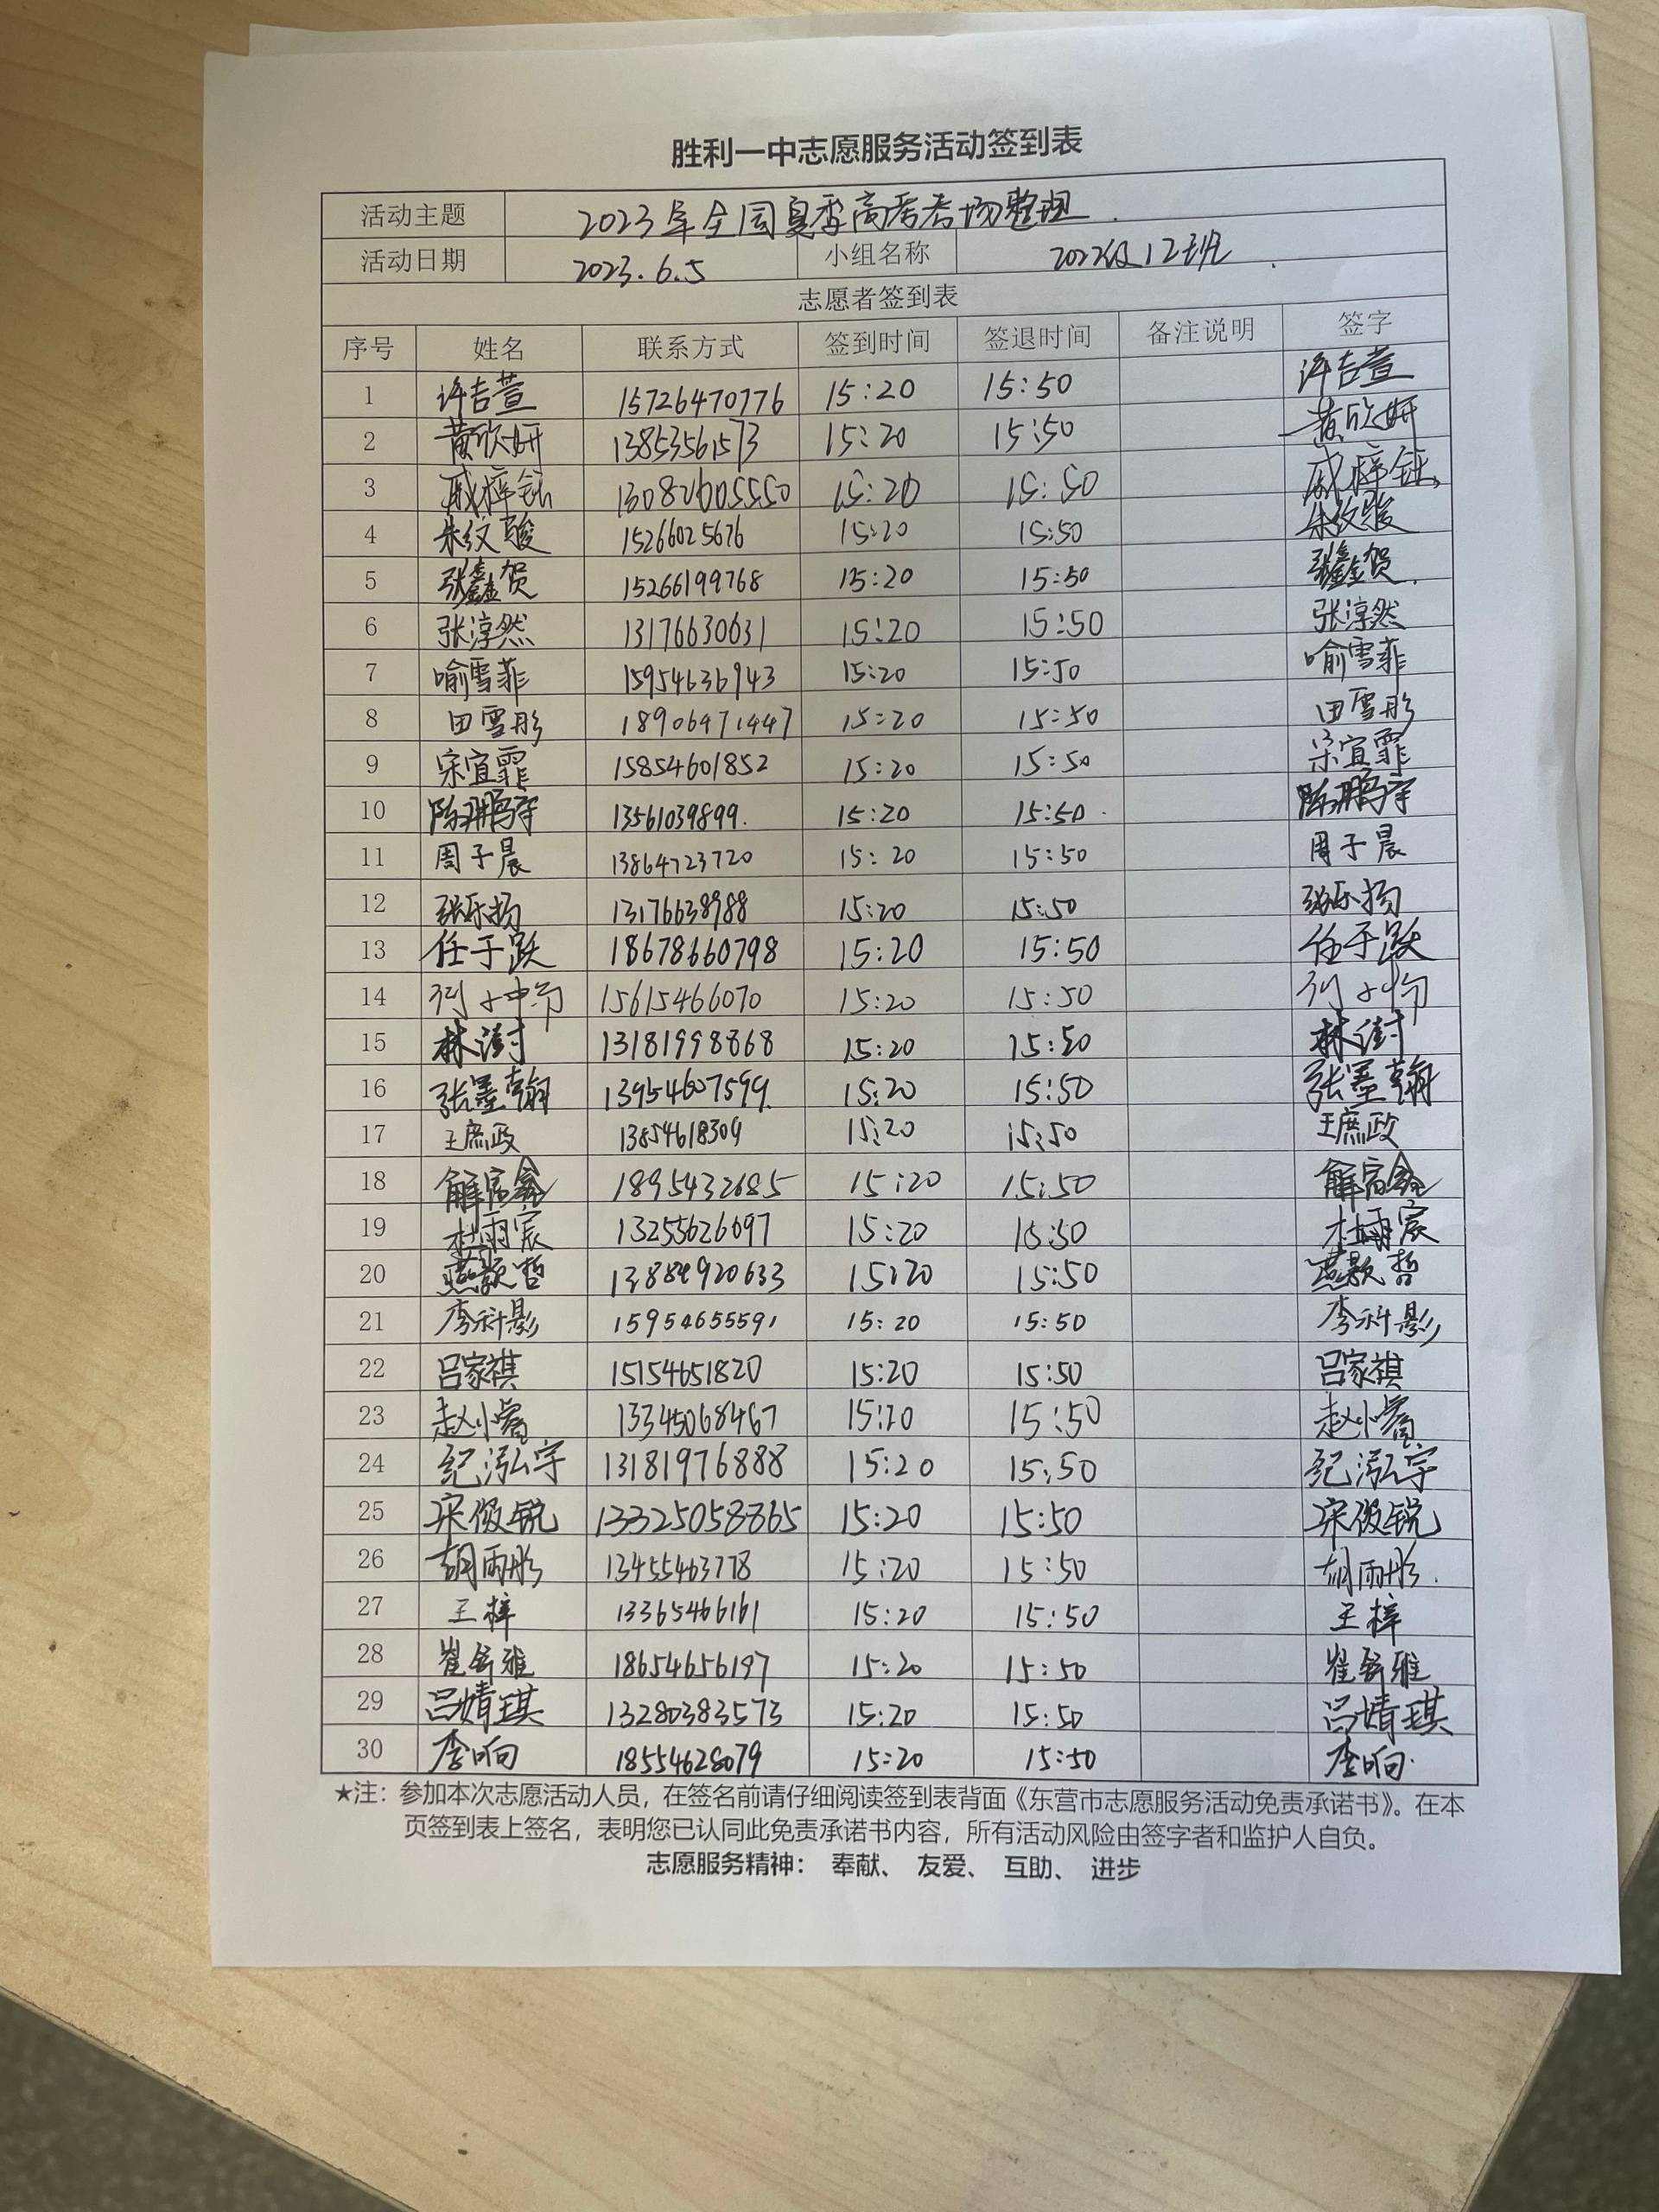 胜利一中志愿服务活动签到表
活动主题 2023年全国夏季高考考场整理
活动日期 2023.6.5 小组名称 2022级12班
志愿者签到表
序号 姓名 联系方式 签到时间 签退时间 备注说明 签字
1 许吉萱 15726470776 15:20 15:50 许吉萱
2 黄欣妍 13853561573 15:20 15:50 黄欣妍
3 戚梓钰 13082605550 15:20 15:50 戚梓钰
4 朱纹骏 15266025676 15:20 15:50 朱纹骏
5 张鑫贺 15266199768 15:20 15:50 张鑫贺
6 张淳然 13176630631 15:20 15:50 张淳然
7 喻雪菲 15954636943 15:20 15:50 喻雪菲
8 田雪彤 18906471447 15:20 15:50 田雪彤
9 宋宜霏 15854601852 15:20 15:50 宋宜霏
10 13561039899 15:20 15:50
11 周子晨 13864723720 15:20 15:50 周子晨
12 张乐扬 13176638988 15:20 15:50 张乐扬
13 任于跃 18678660798 15:20 15:50 任于跃
14 15615466070 15:20 15:50
15 林澍 13181998868 15:20 15:50 林澍
16 张墨翰 13954607599 15:20 15:50 张墨翰
17 王庶政 13854618309 15:20 15:50 王庶政
18 解富鑫 1895432685 15:20 15:50 解富鑫
19 杜雨宸 13255626097 15:20 15:50 杜雨宸
20 燕颢哲 13884920633 15:20 15:50 燕颢哲
21 李科影 15954655591 15:20 15:50 李科影
22 吕家祺 15154651820 15:20 15:50 吕家祺
23 赵小睿 13345068467 15:20 15:50 赵小睿
24 纪泓宇 13181976888 15:20 15:50 纪泓宇
25 宋俊锐 13325058865 15:20 15:50 宋俊锐
26 胡雨彤 13455463778 15:20 15:50 胡雨彤
27 王梓 13365466161 15:20 15:50 王梓
28 崔舒雅 18654656197 15:20 15:50 崔舒雅
29 吕婧琪 13280383573 15:20 15:50 吕婧琪
30 李响 18554628079 15:20 15:50 李响
★注：参加本次志愿活动人员，在签名前请仔细阅读签到表背面《东营市志愿服务活动免责承诺书》。在本
页签到表上签名，表明您已认同此免责承诺书内容，所有活动风险由签字者和监护人自负。
志愿服务精神： 奉献、 友爱、 互助、 进步